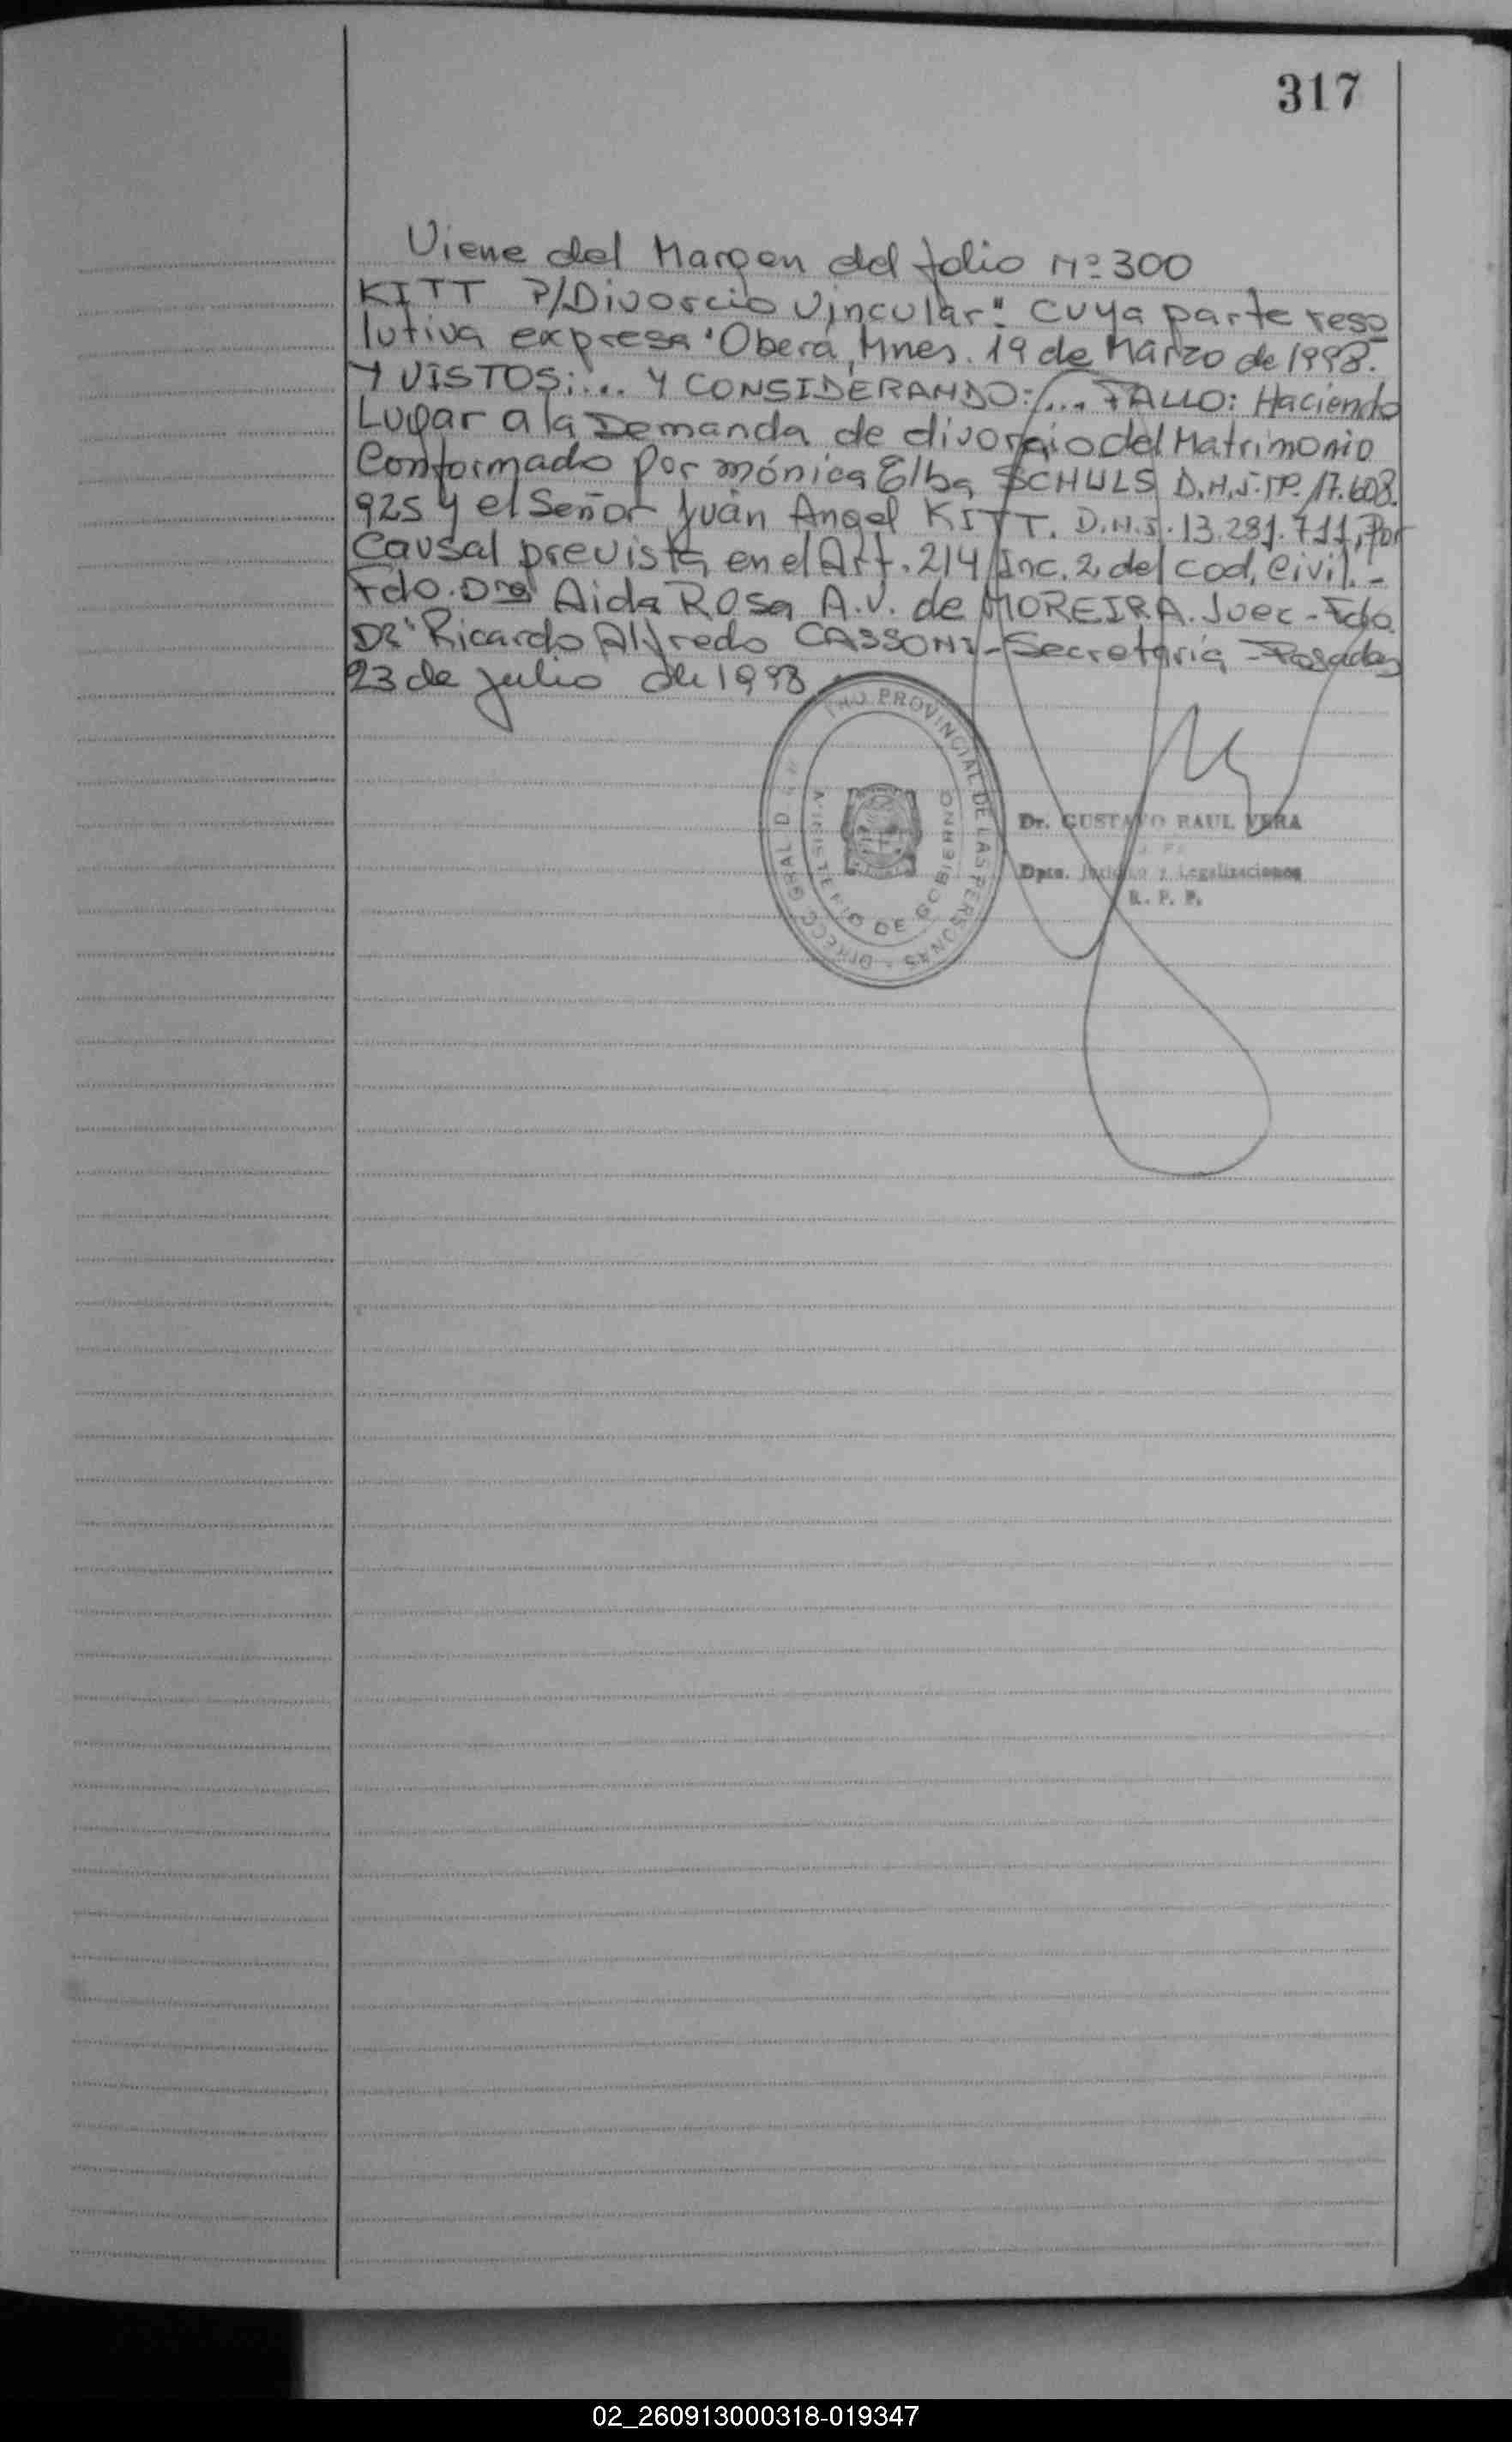 317
Viene del Margen del folio Nº 300
KITT P/Divorcio Vincular": Cuya parte reso
lutiva expresa "Obera, Mnes. 19 de Marzo de 1998.
Y VISTOS:... Y CONSIDERANDO:... FALLO: Haciendo
Lugar a la Demanda de divorcio del Matrimonio
Conformado por mónica Elba SCHULS D.N.I. Nº. 17.608.
925 y el Señor Juan Angel KITT. D.N.I. 13.281.711, Por
Causal prevista en el Art. 214 Inc. 2 del cod. Civil. -
Fdo. Dra Aida Rosa A.V. de MOREIRA. Juec - Fdo.
Dr. Ricardo Alfredo CASSONI - Secretaria - Posadas
23 de Julio de 1998
PROVINCIAL DE LAS PERSONAS - DIRECC. GRAL. D
MINISTERIO DE GOBIERNO
Dr. GUSTAVO RAUL VERA
Dpto. Jurídico y Legalizaciones
R. P. P.
02_260913000318-019347